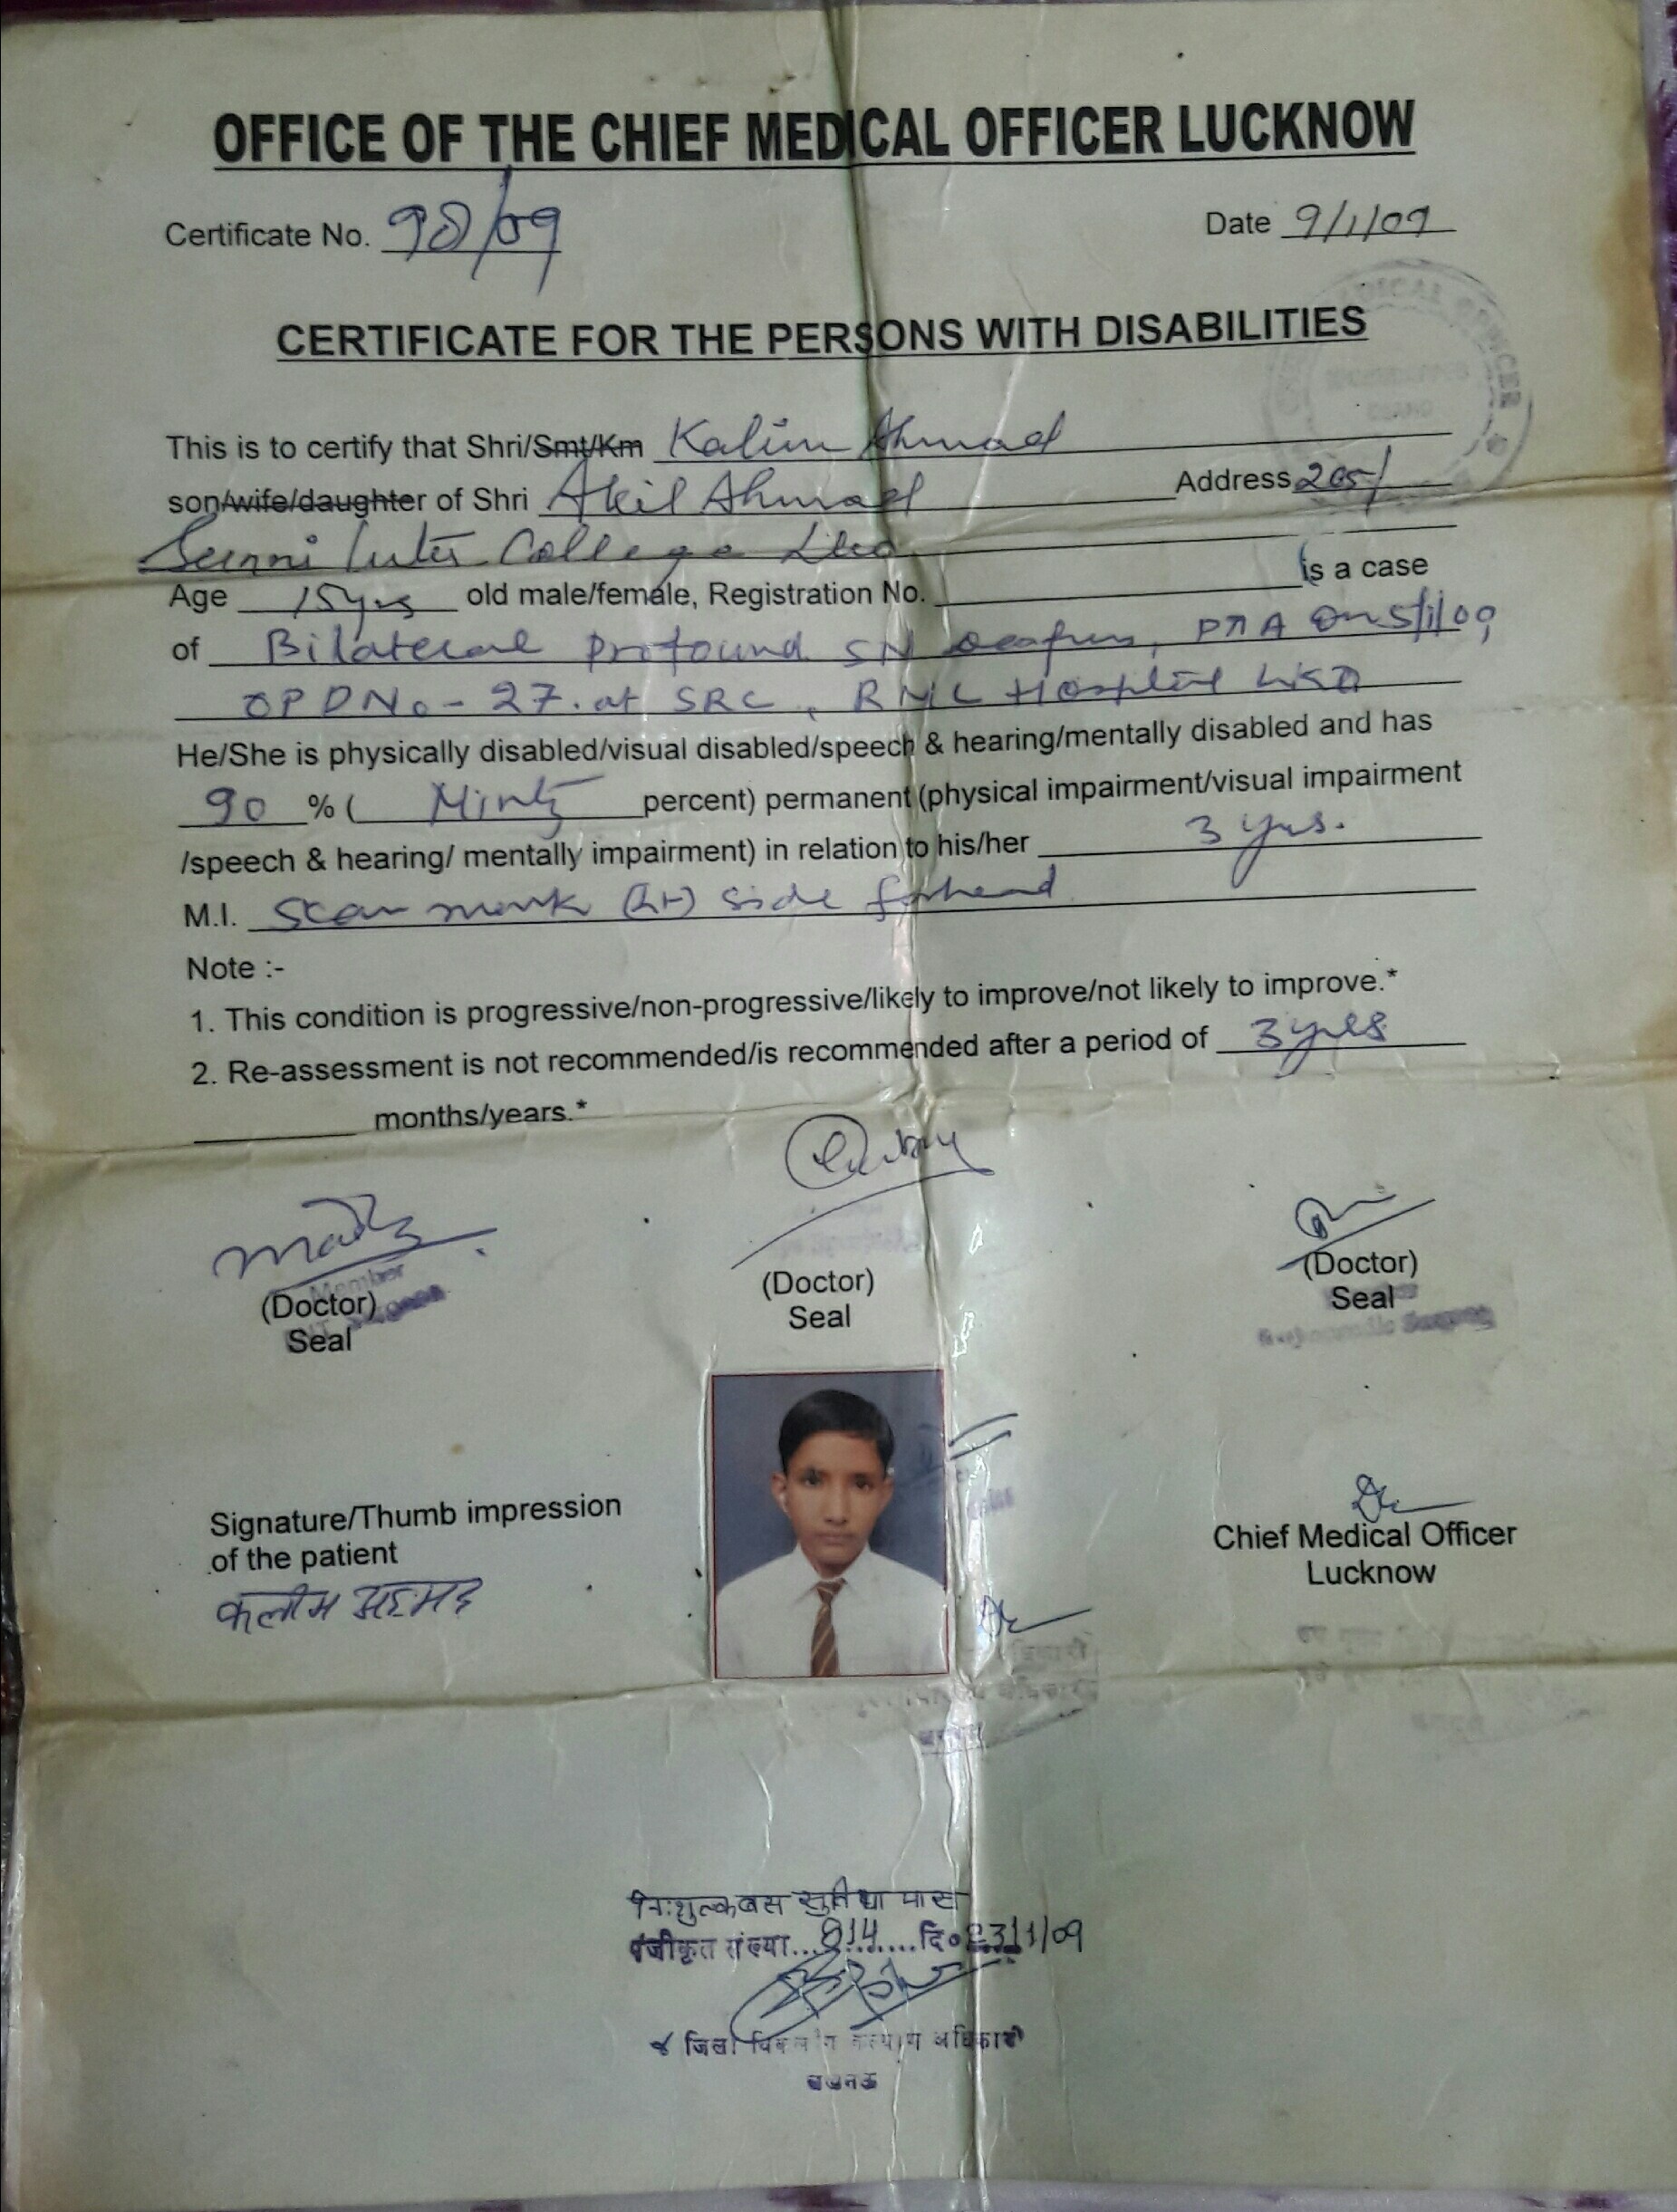 OFFICE OF THE CHIEF MEDICAL OFFICER LUCKNOW
Certificate No. 98/09 Date 9/1/09
CERTIFICATE FOR THE PERSONS WITH DISABILITIES
This is to certify that Shri/Smt/Km Kalim Ahmad
son/wife/daughter of Shri Akil Ahmad Address 205/
Sunni Inter College Lko
Age 15yrs old male/female, Registration No. is a case
of Bilateral profound SN deafness, PTA on 5/1/09
OPD No - 27. at SRC, RML Hospital LKO
He/She is physically disabled/visual disabled/speech & hearing/mentally disabled and has
90 % ( Ninty percent) permanent (physical impairment/visual impairment
/speech & hearing/ mentally impairment) in relation to his/her 3 yrs.
M.I. Scar mark side forhead
Note :-
1. This condition is progressive/non-progressive/likely to improve/not likely to improve.*
2. Re-assessment is not recommended/is recommended after a period of 3 yrs
months/years.*
Member
(Doctor) (Doctor) (Doctor)
Seal Seal Seal
Surgeon
Signature/Thumb impression
of the patient
कलीम अहमद
Chief Medical Officer
Lucknow
निःशुल्क बस सुविधा पास
पंजीकृत संख्या...814......दि० /1/09
जिला विकलांग कल्याण अधिकारी
लखनऊ